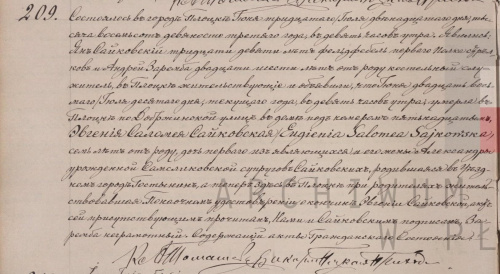 209.
Состоялось въ городѣ Плоцкѣ Іюня тридцатаго /Іюля двѣнадцатаго/ дня, ты-
сяча восемьсотъ девяносто третьяго года, въ девять часовъ утра. Явились:
Янъ Сайковскій тридцати девяти лѣтъ фельдфебель перваго Полка Стрѣл-
ковъ и Андрей Заремба двадцати шести лѣтъ отъ роду костельный слу-
житель, въ Плоцкѣ жительствующіе и объявили, что Іюня двадцать вось-
маго /Іюля десятаго/ дня, текущаго года, въ девять часовъ утра, умерла въ
Плоцкѣ по Добржинской улицѣ въ домѣ подъ номеромъ пятнадцатымъ,
Евгенія Саломея Сайковская /Eugienia Salomea Sajkowska/
семь лѣтъ отъ роду, дочь перваго изъ являющихся и его жены Александры
урожденной супруговъ Сайковскихъ, родившаяся въ Уѣзд-
номъ городѣ Гостынинѣ, а теперь здѣсь въ Плоцкѣ при родителяхъ житель-
ствовавшая. По настоящему удостовѣренію о кончинѣ Евгеніи Сайковской, актъ
сей присутствующимъ прочитанъ, Нами и Сайковскимъ подписанъ, За-
ремба неграмотный. Содержащій акты Гражданскаго Состоянія
Кс.